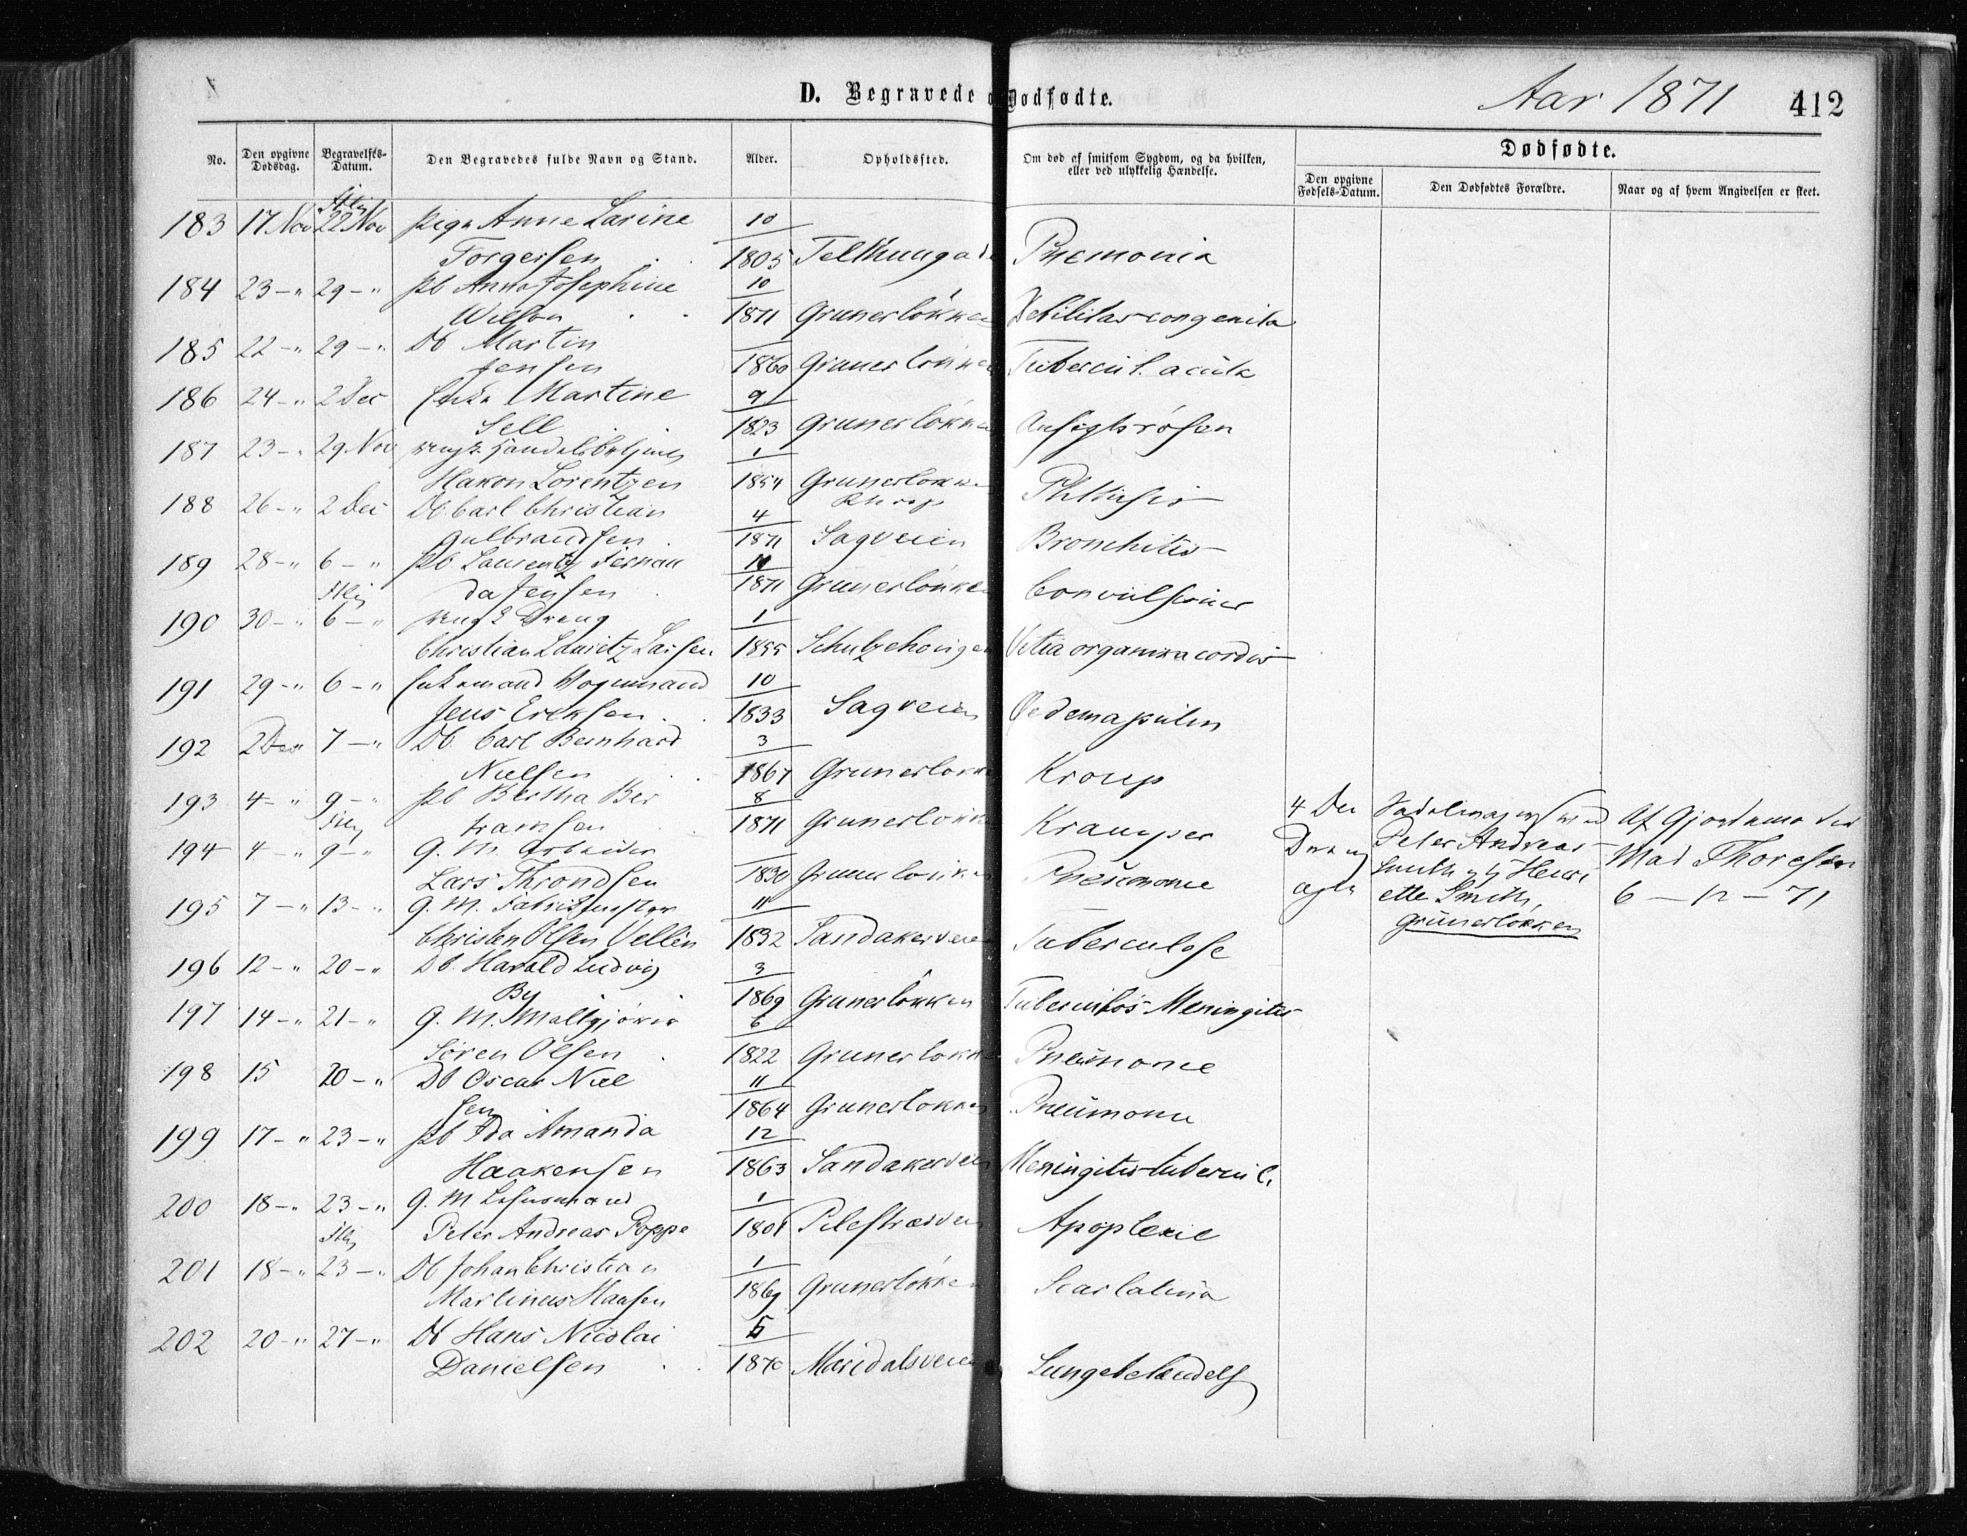 D. Begravede o Dødfødte.
Aar 1871
412
No.
Den opgivne Dødsdag.
Begravelses-Datum.
Den Begravedes fulde Navn og Stand.
Alder.
Opholdssted.
Om død af smitsom Sygdom, og da hvilken, eller ved ulykkelig Hændelse.
Dødfødte.
Den opgivne Fødsels-Datum.
Den Dødfødtes Forældre.
Naar og af hvem Angivelsen er skeet.
183 17 Nov 22 Nov Pige Anne Larine 10
Torgersen 1805 Pnemonia
184 23 - " 29 - " Pb Anna Josephine 10
Wilson 1871 Grunerløkken Debilitas congenita
185 22 - " 29 - " Db Martin
Jensen 1860 Grunerløkken Tubercul. acuta
186 24 - " 2 Dec Enke Martine 9
Sell 1823 Grunerløkken Ansigtsrosen
187 23 - " 29 Nov 1
Hakon Lorentzen 1854 Grunerløkken Phthisis
188 26 - " 2 Dec Db Carl Christian 4
Gulbrandsen 1871 Sagveien Bronchitis
189 28 - " 6 - " Pb Laurentz Fernan
da Jensen 1871 Grunerløkken Convulsiones
190 30 - " 6 - " ung Dreng 1
Christian Lauritz Larsen 1855 Vitia organica cordis
191 29 - " 6 - " Enkemand Vognmand 10
Jens Ericksen 1833 Sagveien Oedema pulm
192 2 Dec 7 - " Db. Carl Bernhard 3
Nielsen 1867 Grunerløkken Kroup
193 4 - " 9 - " Pb Bertha Ber 8
tramsen 1871 Grunerløkken Kramper
194 4 - " 9 - " G. M. Arbeider
Lars Throndsen 1830 Grunerløkken Pneumonie
4 Dec
Dreng
ægte
Peter Andreas
Smith og Henri
ette Smith,
Grünerløkken
Af Gjordemoder
Mad Thoresen
6 - 12 - 71
195 7 - " 13 - " G. M. 11
Christen Olsen Vellin 1832 Sandakerveien Tuberculose
196 12 - " 20 - " Db. Harald Ludvig 3
By 1869 Grunerløkken Tuberculøs Meningitis
197 14 - " 21 - " G. M. 6
Søren Olsen 1822 Grunerløkken Pneumonie
198 15 20 - " Db Oscar Niel 11
sen 1864 Grunerløkken Pneumonie
199 17 - " 23 - " Pb Ida Amanda 12
Haakensen 1863 Sandakerveien Meningitis tubercul.
200 18 - " 23 - " G. M 1
Peter Andreas Poppe 1801 Pilestrædet Apoplexie
201 18 - " 23 - " Db Johan Christian 1
Martinus Hansen 1869 Grunerløkken Scarlatina
202 20 - " 27 - " Db Hans Nicolai 5
Danielsen 1870 Maridalsveien Lungebetændels